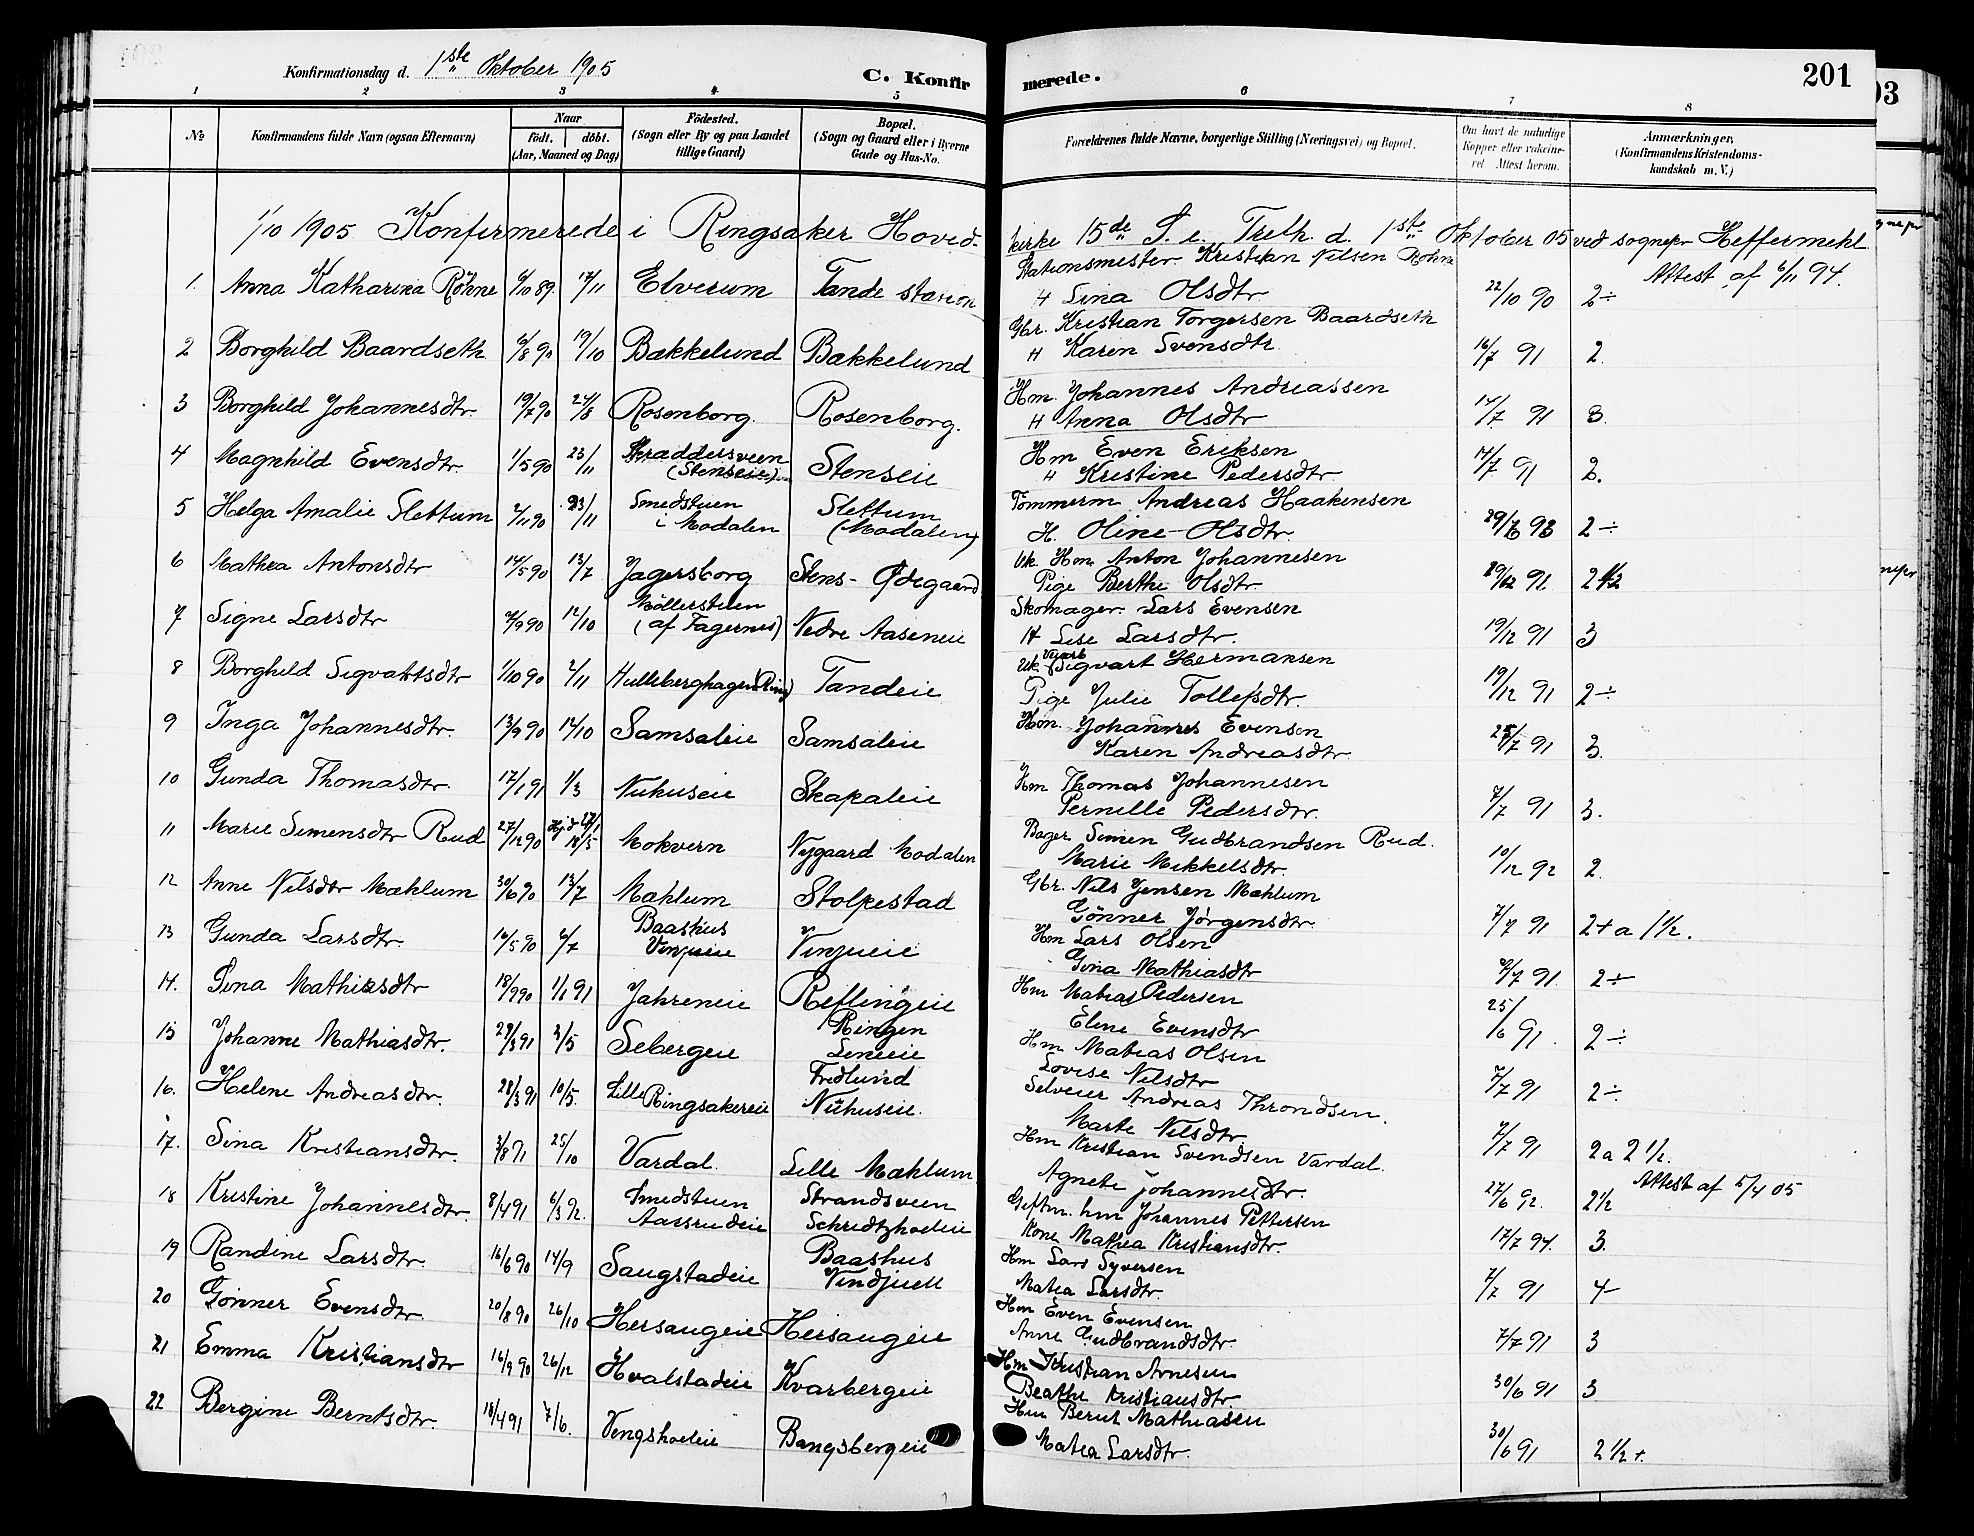 Konfirmationsdag d. 1ste Oktober 1905
C. Konfirmerede.
201
1 2 3 4 5 6 7 8
No. Konfirmandens fulde Navn (ogsaa Efternavn) Naar født. døbt. (Aar, Maaned og Dag) Fødested. (Sogn eller By og paa Landet tillige Gaard) Bopæl. (Sogn og Gaard eller i Byerne Gade og Hus-No. Forældrenes fulde Navne, borgerlige Stilling (Næringsvei) og Bopæl. Om havt de naturlige Kopper eller vakcineret Attest herom. Anmærkninger, (Konfirmandens Kristendomskundskab m. V.)
1/10 1905 Konfirmerede i Ringsaker Hovedkirke 15de S. e. Treth. d. 1ste Oktober 05 ved sognepr Heffermehl
Stationsmester Kristian Nilsen Röhne Attest af 6/11 94.
1. Anna Katharina Röhne 6/10 89. 17/11 Elverum Tande station H Lina Olsdtr 22/10 90 2÷
Gbr. Kristian Torgersen Baardseth
2 Borghild Baardseth 6/8 90 19/10 Bækkelund Bækkelund H Karen Svensdtr 16/7 91 2.
Hm. Johannes Andreassen
3 Borghild Johannesdtr. 19/7 90 24/8 Rosenborg. Rosenborg. H Anna Olsdtr 14/7 91 3.
Hm Even Eriksen
4 Magnhild Evensdtr. 1/5 90 23/11 Skræddersveen (Stenseie) Stenseie H Kristine Pedersdtr. 14/7 91 2.
Tømmerm Andreas Haakensen
5 Helga Amalie Slettum 2/11 90 23/11 Smedstuen i Modalen Slettum (Modalen) H. Oline Olsdtr. 29/6 93 2÷
Uk Hm Anton Johannesen
6 Mathea Antonsdtr 14/5 90 13/7 Jagersborg Stens-Ødegaard Pige Berthe Olsdtr. 29/12 91 2 1/2
Skomager Lars Evensen
7 Signe Larsdtr 7/9 90 12/10 Möllerstuen (af Fagernes) Nedre Aaseneie H Lise Larsdtr. 19/12 91 3
Uk Sigvart Hermansen
8 Borghild Sigvartsdtr 1/10 90 2/11 Hulleberghagen (Ring) Tandeie Pige Julie Tollefsdtr. 19/12 91 2÷
Hm. Johannes Evensen
9 Inga Johannesdtr. 13/9 90 12/10 Samsaleie Samsaleie Karen Andreasdtr. 25/7 91 3.
Hm Thomas Johannesen
10 Gunda Thomasdtr. 17/1 91 1/3 Nuhuseie Skapaleie Pernille Pedersdtr. 7/7 91 3.
Bager Simen Gudbrandsen Rud.
11 Marie Simensdtr Rud 27/12 90 Hjd 27/1 18/5 Mokvern Nygaard Modalen Marie Mikkelsdtr. 10/12 92 2.
Gbr. Nils Jensen Mæhlum
12 Anne Nilsdtr Mæhlum 30/6 90 13/7 Mæhlum Stolpestad Gönner Jörgensdtr. 7/7 91 2+ a 1 1/2.
Hm Lars Olsen
13 Gunda Larsdtr. 16/5 90 6/7 Baashus Vinjueie Vinjueie Gina Mathiasdtr 9/7 91 2÷
Hm Matias Pedersen
14. Sina Mathiasdtr 18/9 90 1/1 91 Jahreneie Reflingeie Eline Evensdtr 25/6 91. 2÷
Hm Matias Olsen
15 Johanne Mathiasdtr. 29/3 91 3/5 Sebergeie Ringen Lineie Lovise Nilsdtr 7/7 91 2÷
Selveier Andreas Throndsen.
16. Helene Andreasdtr. 28/3 91 10/5. Lille Ringsakereie Fredlund Nuhuseie. Marte Nilsdtr. 7/7 91 2 a 2 1/2.
Hm Kristian Svendsen Vardal.
17. Sina Kristiansdtr. 3/8 91 25/10 Vardal. Lille Mæhlum Agnete Johannesdtr. 27/6 92. 2 1/2 Attest af 5/4 05
Giftm. hm Johannes Pettersen
18 Kristine Johannesdtr. 8/4 91 6/3 92. Smedstuen Aassrudeie Strandsveen Schridtzhoeleie Kone Mathea Kristiansdtr. 17/7 94. 3.
Hm Lars Syversen
19 Randine Larsdtr. 16/6 90 14/9 Saugstadeie Baashus Vindjueie Matea Larsdtr. 7/7 91 4-
Hm Even Evensen
20 Gönner Evensdtr. 20/8 90 26/10 Hersaugeie Hersaugeie Anne Gudbrandsdtr. 7/7 91 3
Hm Kristian Arnesen
21 Emma Kristiansdtr 16/9 90 26/12 Hvalstadeie Kvarbergeie Beathe Kristiansdtr. 30/6 91 3
Hm Bernt Mathiasen
22 Bergine Berntsdtr. 18/4 91 7/6. Vengshoeleie Bangsbergeie Matea Larsdtr. 30/6 91 2 1/2+.